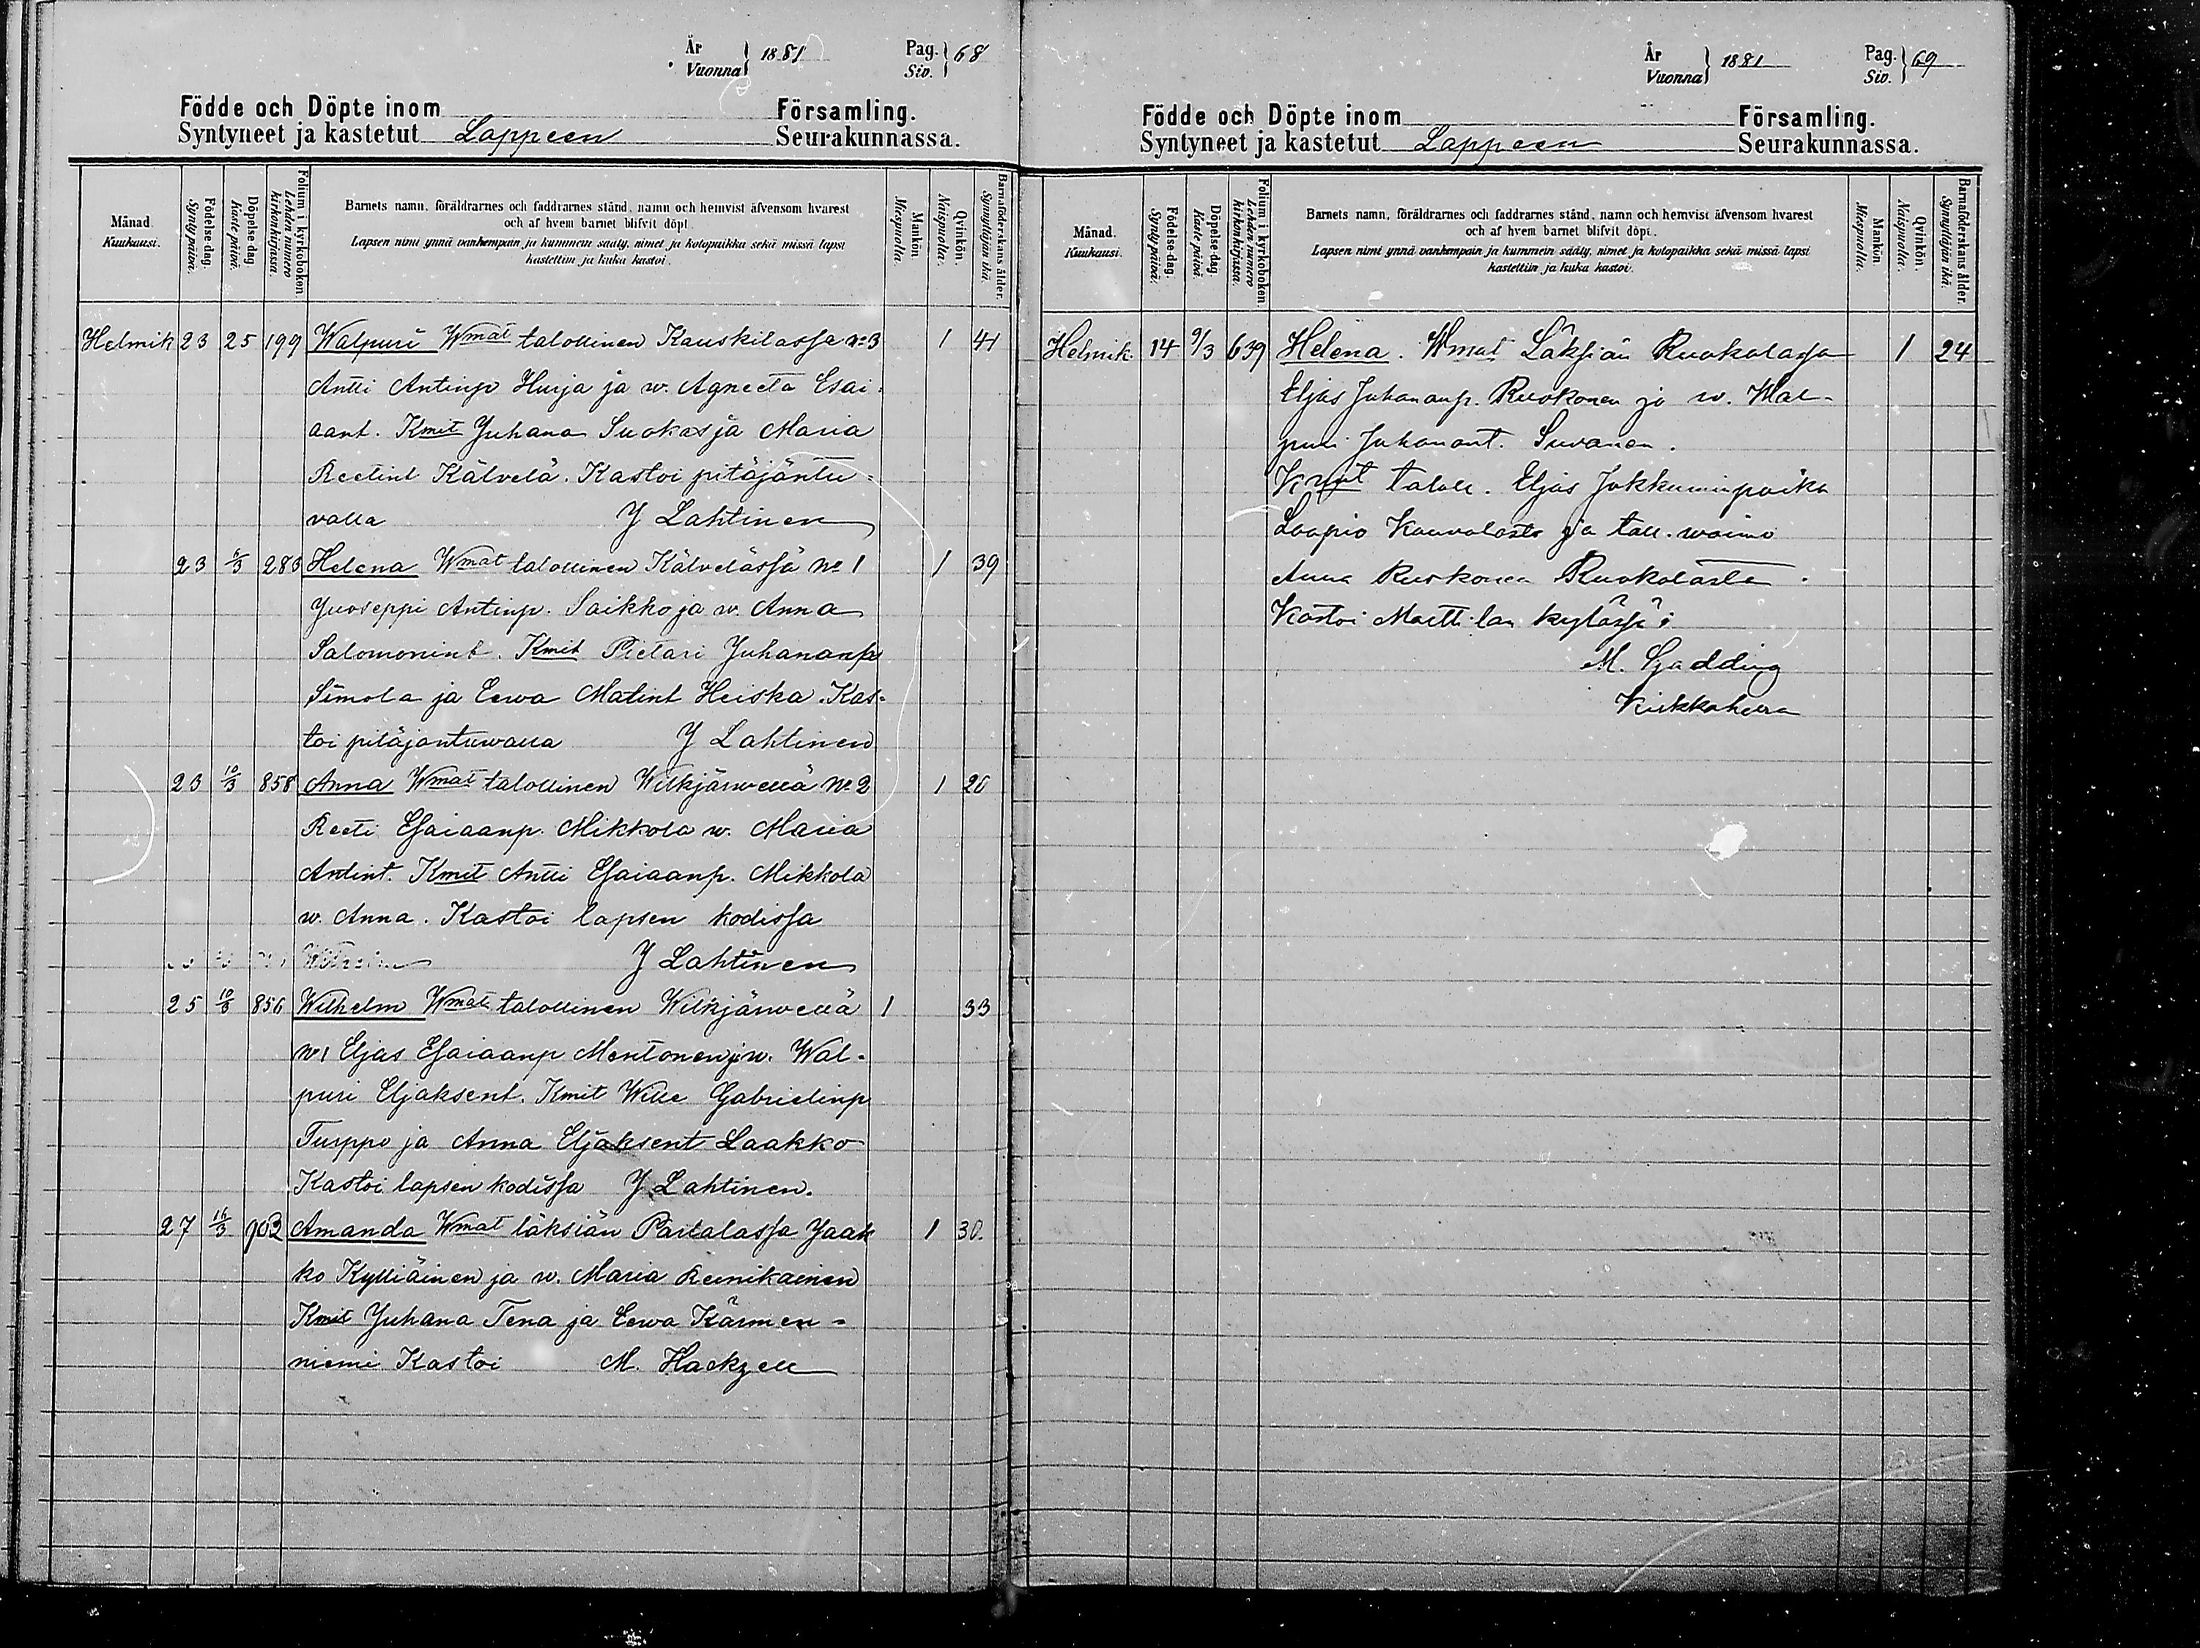 År
Vuonna } 1881 Pag.
Siv. } 68
Födde och Döpte inom Församling.
Syntyneet ja kastetut Lappeen Seurakunnassa.
Månad.
Kuukausi.
Födelse-dag.
Synty päivä.
Döpelse-dag
Kaste päivä.
Folium i kyrkoboken
Lehden numero
kirkonkirjassa.
Barnets namn, föräldrarnes och faddrarnes stånd, namn och hemvist äfvensom hvarest
och af hvem barnet blifvit döpt.
Lapsen nimi ynnä vanhempain ja kummein sääty, nimet ja kotopaikka sekä missä lapsi
kastettiin ja kuka kastoi.
Mankön
Miespuolia.
Qvinkön.
Naispuolia.
Barnaföderskans ålder.
Synnyttäjän ikä.
Helmik 23 25 199 Walpuri Wmat talollinen Kauskilassa No 3 1 41
Antti Antinp Hurja ja w. Agneeta Esai-
aant. Kmit Juhana Suokas ja Maria
Reetint Kälvelä. Kastoi pitäjäntu-
valla J Lahtinen
23 6/3 283 Helena Wmat talollinen Kälvelässä No 1 1 39
Juoseppi Antinp. Saikko ja w. Anna
Salomonint. Kmit Pietari Juhananp
Simola ja Eewa Matint Heiska. Kas-
toi pitäjäntuwalla J Lahtinen
23 10/3 858 Anna Wmat talollinen Wilkjärwellä No 2 1 20
Reeti Esaiaanp. Mikkola w. Maria
Antint. Kmit Antti Esaiaanp. Mikkola
w. Anna. Kastoi lapsen kodissa
Wilhelm J Lahtinen
25 10/3 856 Wilhelm Wmat talollinen Wilkjärwellä 1 33
No 1 Eljas Esaiaanp Mentonen ja w. Wal-
puri Eljaksent. Kmit Wille Gabrielinp
Turppo ja Anna Eljaksent Laakko
Kastoi lapsen kodissa J Lahtinen.
27 16/3 703 Amanda Wmat läksiän Partalassa Jaak
ko Kylliäinen ja w. Maria Reinikainen
Kmit Juhana Tena ja Eewa Kärmen-
niemi Kastoi M. Hackzell
År
Vuonna } 1881 Pag.
Siv. } 69
Födde och Döpte inom Församling.
Syntyneet ja kastetut Lappeen Seurakunnassa.
Månad.
Kuukausi.
Födelse-dag.
Synty päivä.
Döpelse-dag
Kaste päivä.
Folium i kyrkoboken
Lehden numero
kirkonkirjassa.
Barnets namn, föräldrarnes och faddrarnes stånd, namn och hemvist äfvensom hvarest
och af hvem barnet blifvit döpt.
Lapsen nimi ynnä vanhempain ja kummein sääty, nimet ja kotopaikka sekä missä lapsi
kastettiin ja kuka kastoi.
Mankön.
Miespuolia.
Qvinkön.
Naispuolia.
Barnaföderskans ålder.
Synnyttäjän ikä.
Helmik. 14 9/3 639 Helena. Wmat Läksiän Ruokolassa 1 24
Eljas Juhananp. Ruokonen ja w. Wal-
puri Juhanant. Suvanen.
Kmit taloll. Eljas Jokkuminpoika
Laapio Kauvolasta ja tall. waimo
Anna Ruokonen Ruokolasta.
Kastoi Marttilan kylässä:
M. Gadding
Kirkkoherra